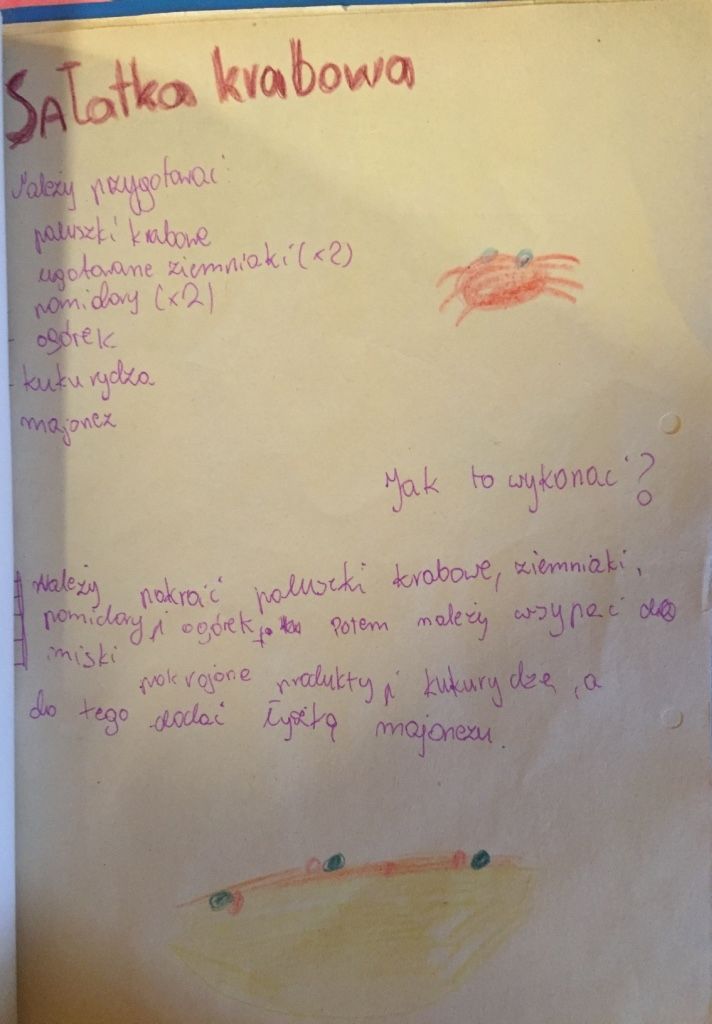 SAłatka krabowa
Należy przygotować:
paluszki krabowe
ugotowane ziemniaki (x2)
pomidory (x2)
- ogórek
- kukurydza
majonez
Jak to wykonać?
Należy pokroić paluszki krabowe, ziemniaki,
pomidory i ogórek. Potem należy wsypać do
miski
pokrojone produkty i kukurydzę, a
do tego dodać łyżkę majonezu.